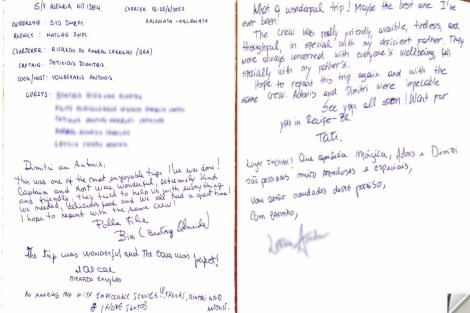 S/Y ALEXIA N.P. 12814
CHARTER 18-25/6/2022
KALAMATA - KALAMATA
OWNERSHIP: SIO SHIPS
AGENCY: HATLAS SHIP.
CHARTERER: RICARDO DO AMARAL CARVALHO (BRA)
CAPTAIN: DIMITRI
COOK/HOST: ANTONIS
GUESTS:
Dimitri an Antonis,
This was one of the most enjoyable trips I've we done!
Captain and Host were wonderful, extremely kind
and friendly, they tried to help us with everything
we needed, delicious food and we all had a great time!
I hope to repeat with the same crew!
Polla Filia
Bia (Beatriz Almeida)
The trip was wonderful and the crew was perfect!
RICARDO
An amazing trip with impeccable service!! Thanks, Dimitri and
Antonis.
What a wonderful trip! Maybe the best one I've
ever been!
The crew was really friendly, tireless, and
thoughtful, in special with my deficient father. They
were always concerned with everyone's wellbeing,
specially with my father's.
Hope to repeat this trip again and with the
same crew. Adonis and Dimitri were impecable
See you all soon! Wait for
you in Recife-BR!
Tati.
Lugar Incrível! Que experiência mágica, Adonis e Dimitri
são pessoas muito atenciosas e especiais,
Vou sentir saudades deste paraíso,
Com carinho,